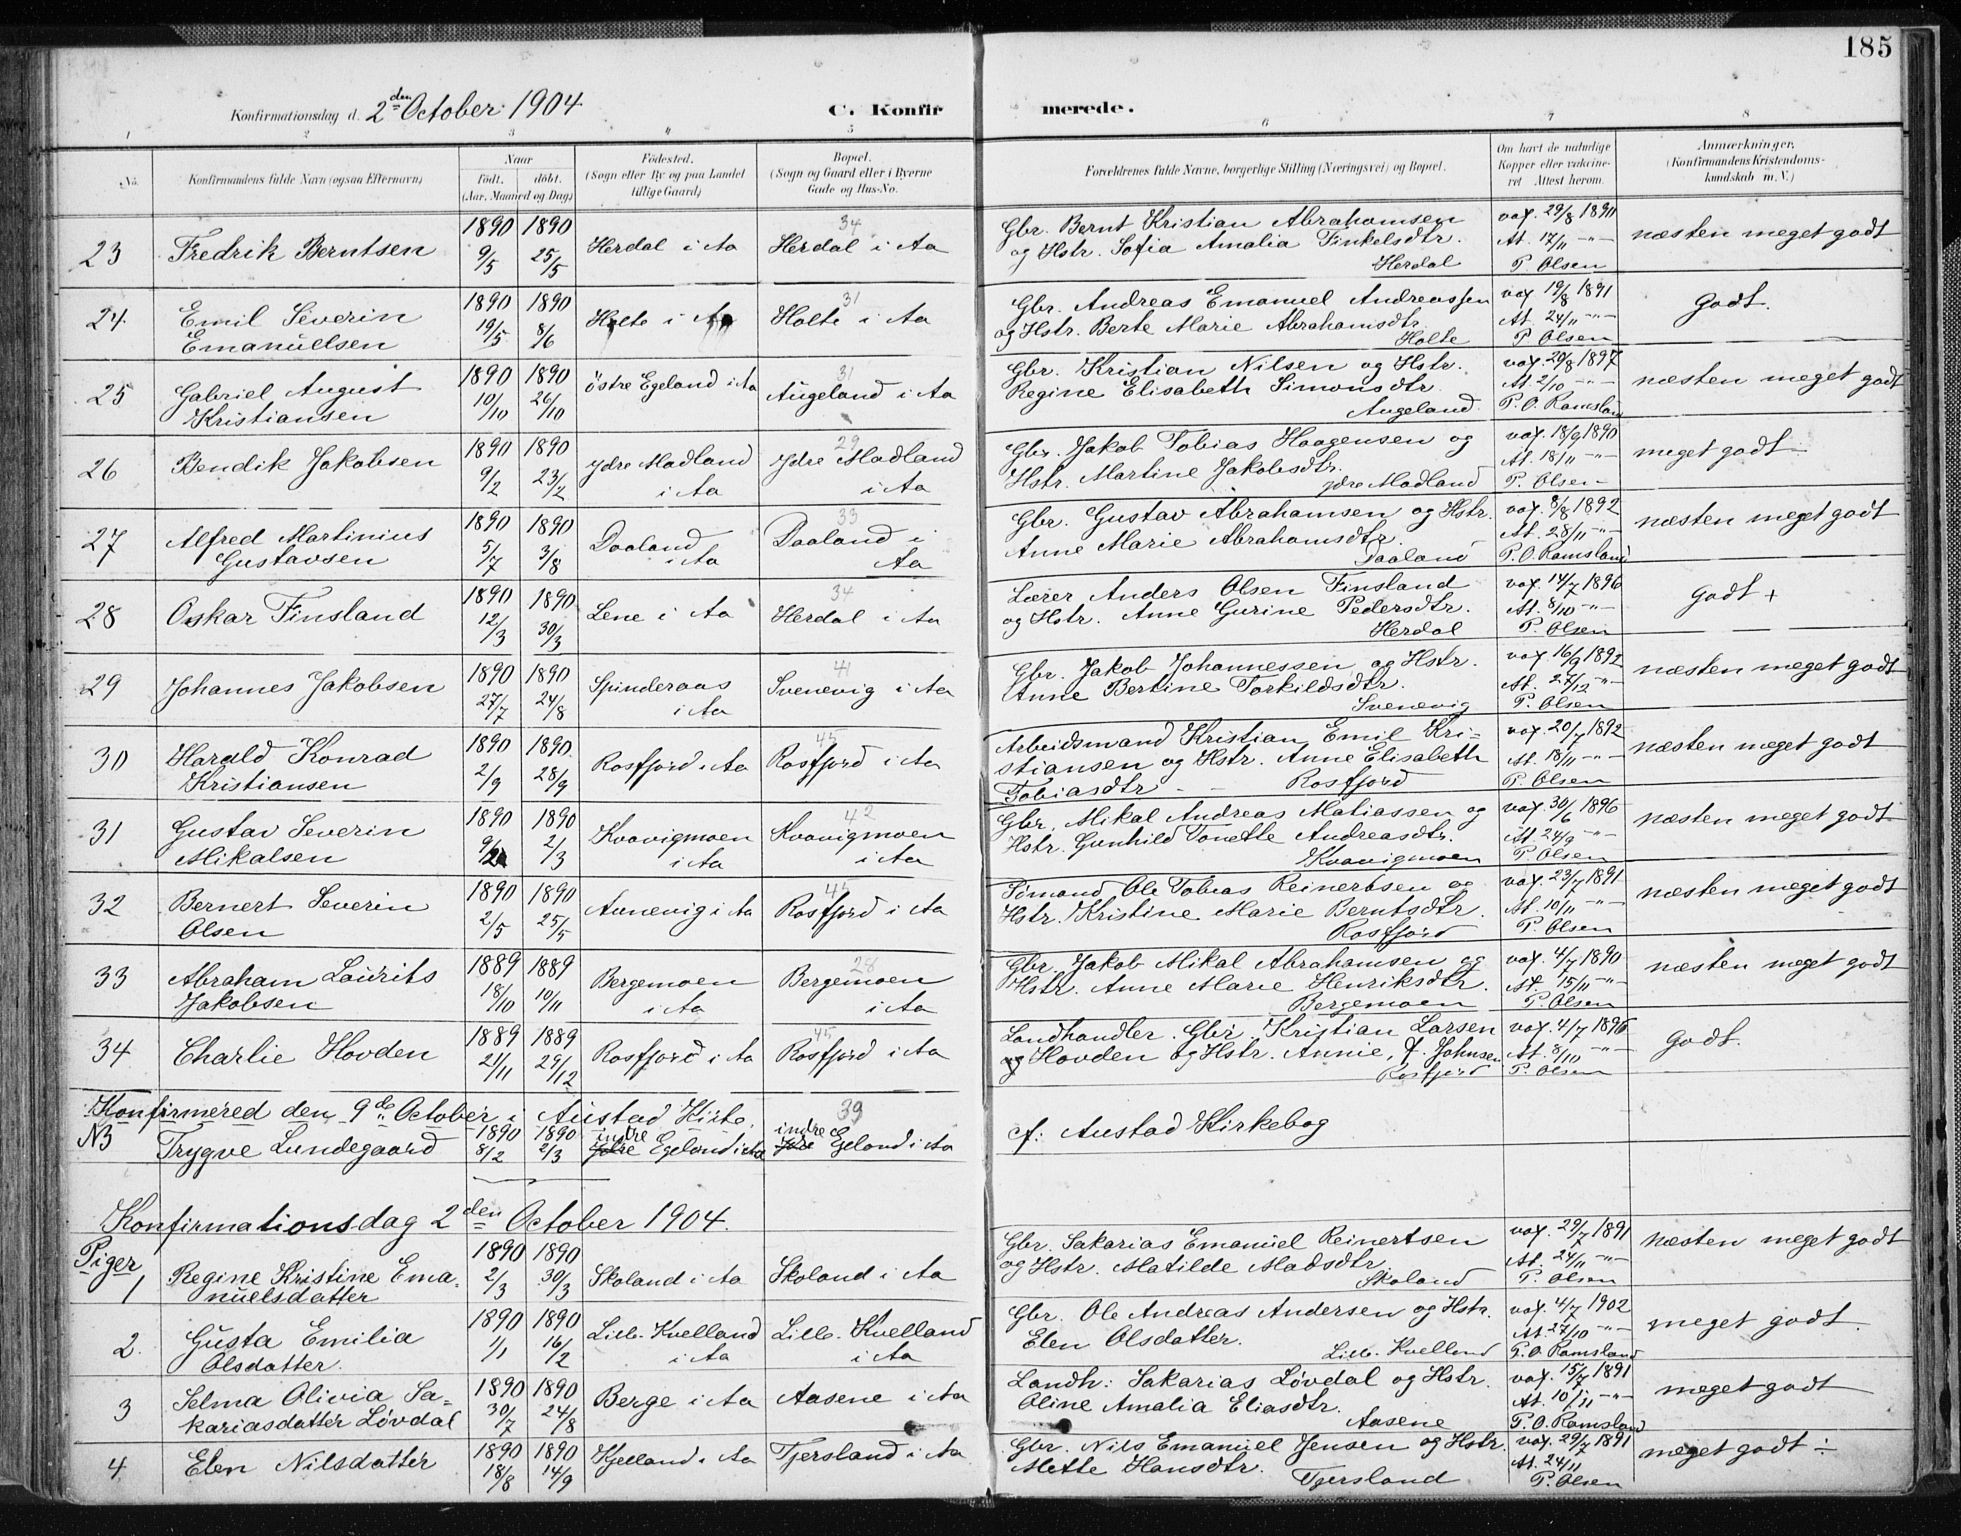 185
Konfirmationsdag d. 2den October 1904
C. Konfirmerede.
1 2 3 4 5 6 7 8
No.
Konfirmandens fulde Navn (ogsaa Efternavn)
Naar
Födt. döbt.
(Aar, Maaned og Dag)
Födested.
(Sogn eller By og paa Landet
tillige Gaard)
Bopæl.
(Sogn og Gaard eller i Byerne
Gade og Hus-No.
Forældrenes fulde Navne, borgerlige Stilling (Næringsvei) og Bopæl.
Om havt de naturlige
Kopper eller vaccine-
ret Attest herom.
Anmærkninger.
(Konfirmandens Kristendoms-
kundskab m. V.)
23 Fredrik Berntsen 1890 9/5 1890 25/5 Herdal i Aa 34 Herdal i Aa
Gbr. Bernt Kristian Abrahamsen
og Hstr. Sofia Amalia Finkelsdtr.
Herdal
vax. 29/8 1890
At. 17/11 -"-
P. Olsen
næsten meget godt
24. Emil Severin
Emanuelsen
1890 19/5 1890 8/6 Holte i Aa 31 Holte i Aa
Gbr. Andreas Emanuel Andreassen
og Hstr. Berte Marie Abrahamsdtr.
Holte
vax 19/8 1891
At. 24/11 -"-
P. Olsen
Godt.
25 Gabriel August
Kristiansen
1890 10/10 1890 26/10 östre Egeland i Aa 31 Augeland i Aa
Gbr. Kristian Nilsen og Hstr.
Regine Elisabeth Simonsdtr.
Augeland
vax. 20/8 1897
At. 2/10 -"-
P. O. Ramsland
næsten meget godt
26 Bendik Jakobsen 1890 9/2 1890 23/2 Ydre Madland
i Aa
29 Ydre Madland
i Aa
Gbr. Jakob Tobias Haagensen og
Hstr. Martine Jakobsdtr.
ydre Madland
vax. 18/9 1890
At. 18/11 -"-
P. Olsen
meget godt
27 Alfred Martinius
Gustavsen
1890 5/7 1890 3/8 Daaland
i Aa
33 Daaland i
Aa
Gbr. Gustav Abrahamsen og Hstr.
Anne Marie Abrahamsdtr.
Daaland
vax. 8/8 1892
At. 28/11 -"-
P. O. Ramsland
næsten meget godt
28 Oskar Finsland 1890 12/3 1890 30/3 Lene i Aa 34 Herdal i Aa
Lærer Anders Olsen Finsland
og Hstr. Anne Gurine Pedersdtr.
Herdal
vax. 14/7 1896
At. 8/10 -"-
P. Olsen
Godt +
29 Johannes Jakobsen 1890 27/7 1890 24/8 Spinderaas
i Aa
41 Svenevig i Aa
Gbr. Jakob Johannessen og Hstr.
Anne Bertine Torkildsdtr.
Svenevig
vax. 16/9 1892
At. 27/12 -"-
P. Olsen
næsten meget godt
30 Harald Konrad
Kristiansen
1890 2/9 1890 28/9 Rosfjord i Aa 45 Rosfjord i Aa
Arbeidsmand Kristian Emil Kri-
stiansen og Hstr. Anne Elisabeth
Tobiasdtr - Rosfjord
vax. 20/7 1892
At. 18/11 -"-
P. Olsen
næsten meget godt
31 Gustav Severin
Mikalsen
1890 9/2 1890 2/3 Kvavigmoen
i Aa
42 Kvavigmoen
i Aa
Gbr. Mikal Andreas Matiassen og
Hstr. Gunhild Tonette Andreasdtr.
Kvavigmoen
vax. 30/6 1896
At. 24/9 -"-
P. Olsen
næsten meget godt
32 Bernert Severin
Olsen
1890 2/5 1890 25/5 Aunevig i Aa 45 Rosfjord i Aa
Sömand, Ole Tobias Reinertsen og
Hstr. Kristine Marie Berntsdtr.
Rosfjord
vax. 23/7 1891
At. 10/11 -"-
P. Olsen
næsten meget godt
33 Abraham Laurits
Jakobsen
1889 18/10 1889 10/11 Bergemoen
i Aa
28 Bergemoen
i Aa
Gbr. Jakob Mikal Abrahamsen og
Hstr. Anne Marie Henriksdtr.
Bergemoen
vax. 4/7 1890
At. 15/11 -"-
P. Olsen
næsten meget godt
34 Charlie Hovden 1889 21/11 1889 29/12 Rosfjord i Aa 45 Rosfjord i Aa
Landhandler. Gbr. Kristian Larsen
og Hovden og Hstr. Annie, f. Johnsen
Rosfjord
vax. 4/7 1896
At. 8/10 -"-
P. Olsen
godt.
Konfirmered den 9de October i Austad Kirke. 39
NB Trygve Lundegaard 1890 8/2 1890 2/3 indre Ydre Egeland i Aa indre Ydre Egeland i Aa
cf: Austad Kirkebog
Konfirmationsdag 2den October 1904.
Piger
1 Regine Kristine Ema-
nuelsdatter
1890 2/3 1890 30/3 Skoland i Aa Skoland i Aa
Gbr. Sakarias Emanuel Reinertsen
og Hstr. Matilde Madsdtr.
Skoland
vax. 29/7 1891
At. 24/11 -"-
P. Olsen
næsten meget godt
2. Gusta Emilia
Olsdatter.
1890 1/1 1890 16/2 Lille-Kvelland
i Aa
Lille-Kvelland
i Aa
Gbr. Ole Andreas Andersen og Hstr.
Elen Olsdatter.
Lille-Kvelland
vax. 4/7 1902
At. 27/10 -"-
P. O. Ramsland
meget godt.
3 Selma Olivia Sa-
kariasdatter Lövdal
1890 30/7 1890 24/8 Berge i Aa Aasene i Aa
Landh: Sakarias Lövdal og Hstr.
Oline Amalia Eliasdtr.
Aasene
vax. 15/7 1891
At. 10/11 -"-
P. O. Ramsland
meget godt
4. Elen Nilsdatter 1890 18/8 1890 14/9 Kjelland i Aa Tjersland i Aa
Gbr. Nils Emanuel Jensen og Hstr.
Mette Hansdtr.
Tjersland
vax. 29/7 1891
At. 24/11
P. Olsen
meget godt ÷